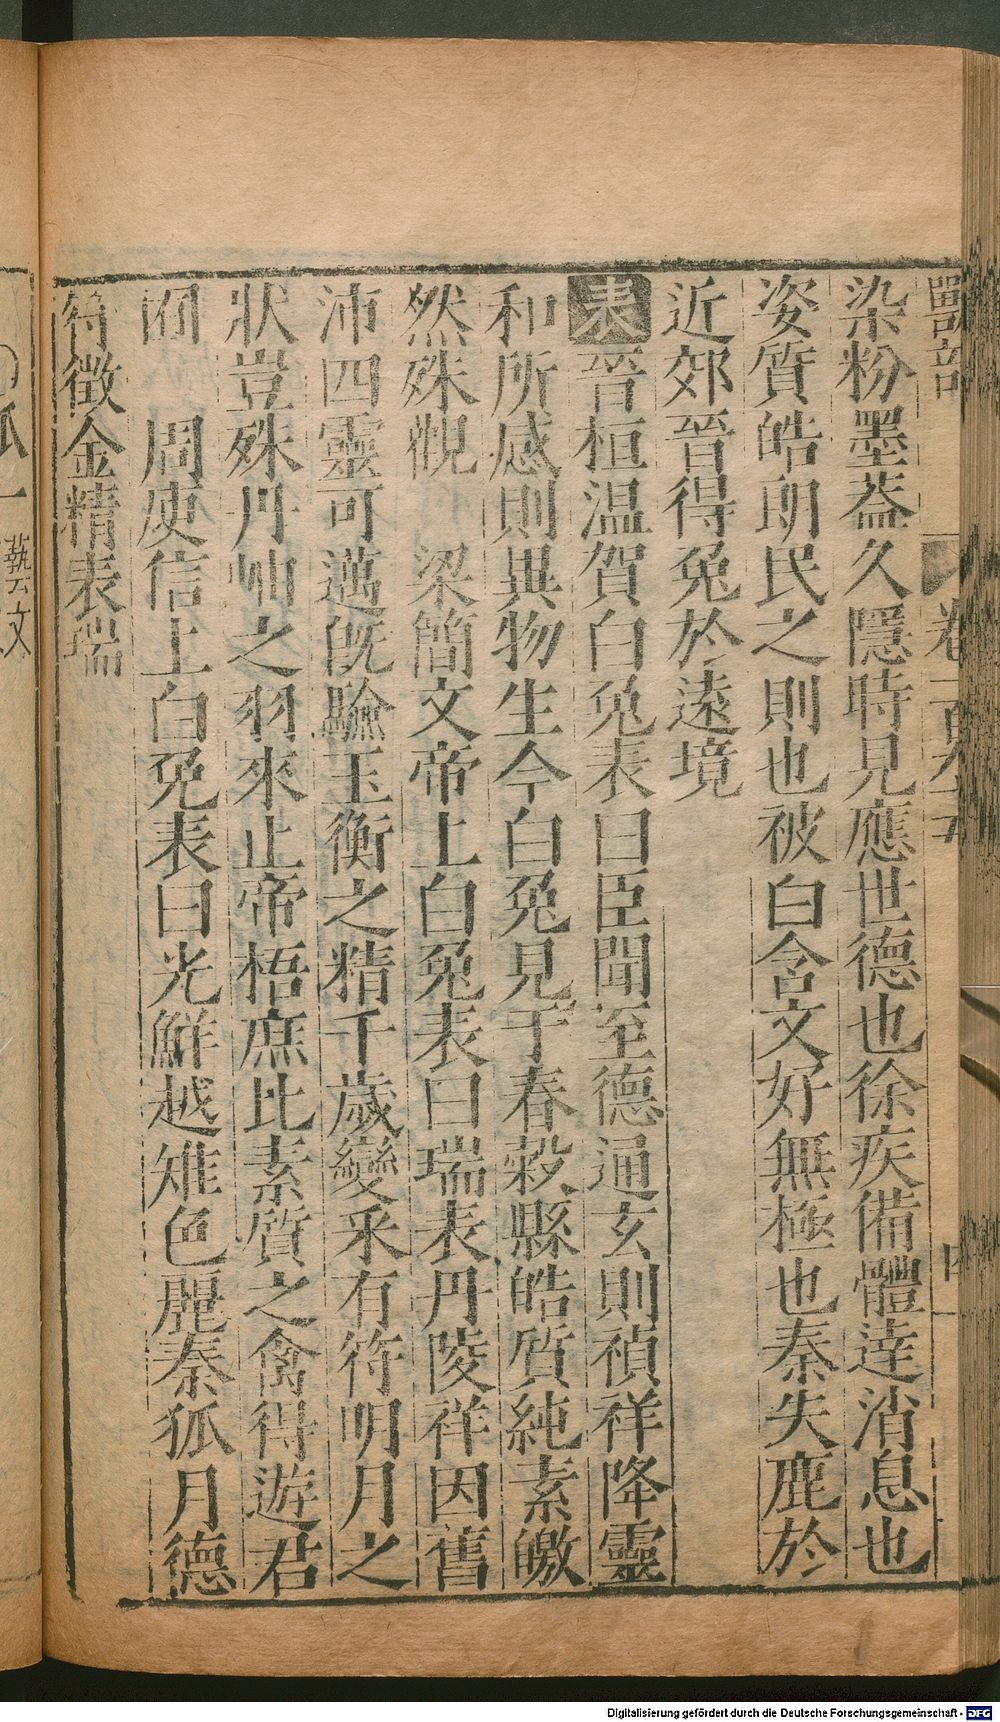 獸部
卷一百
染粉墨葢久隱時見應世德也徐疾備體達消息也
姿質皓朗民之則也被白含文好無極也秦失鹿於
近郊晉得兔於遠境
表晉桓温賀白兔表曰臣聞至德通玄則禎祥降靈
和所感則異物生今白兔見于春榖縣皓質純素皦
然殊觀　梁簡文帝上白兔表曰瑞表丹陵祥因舊
沛四靈可邁旣驗玉衡之精千歲變采有符明月之
狀豈殊丹岫之羽來止帝梧庶比素質之禽得遊君
囿　周庾信上白兔表曰光鮮越雉色麗秦狐月德
符徵金精表瑞
狐一
藝文
Digitalisierung gefördert durch die Deutsche Forschungsgemeinschaft - DFG